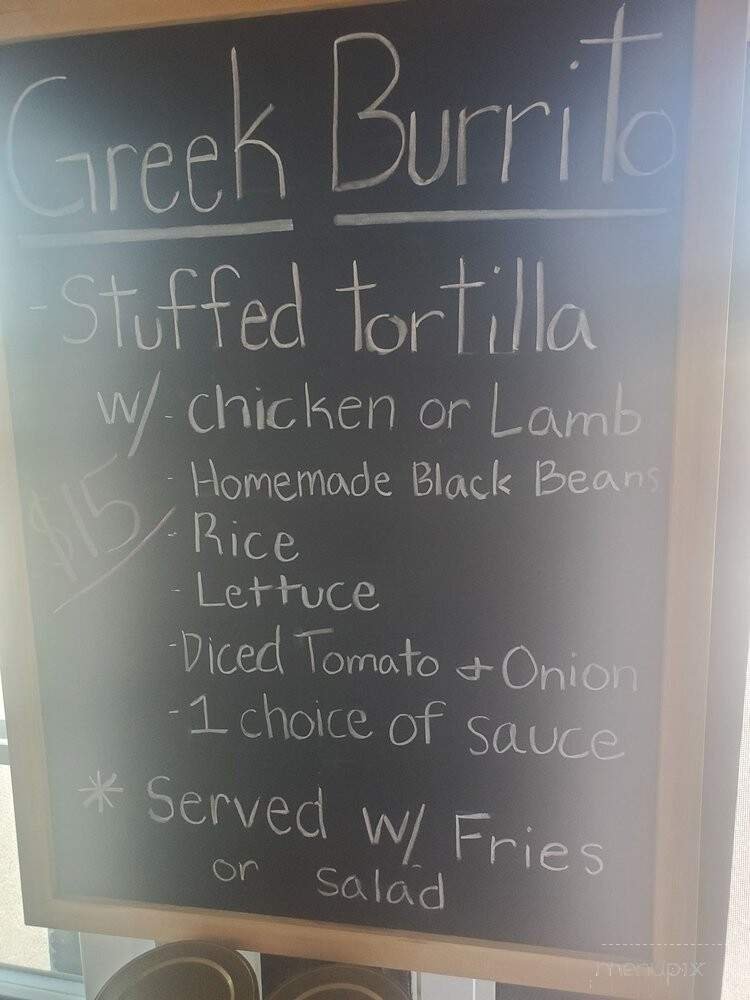 Greek Burrito
- Stuffed tortilla
w/ - chicken or Lamb
- Homemade Black Beans
$15
- Rice
- Lettuce
- Diced Tomato + Onion
- 1 choice of sauce
* Served w/ Fries
or salad
menupix